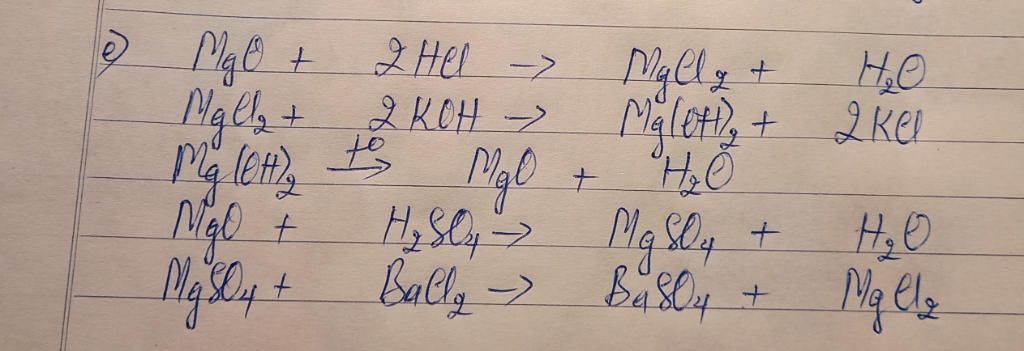 e) MgO + 2HCl -> MgCl₂ + H₂O
MgCl₂ + 2KOH -> Mg(OH)₂ + 2KCl
Mg(OH)₂ t° -> MgO + H₂O
MgO + H₂SO₄ -> MgSO₄ + H₂O
MgSO₄ + BaCl₂ -> BaSO₄ + MgCl₂